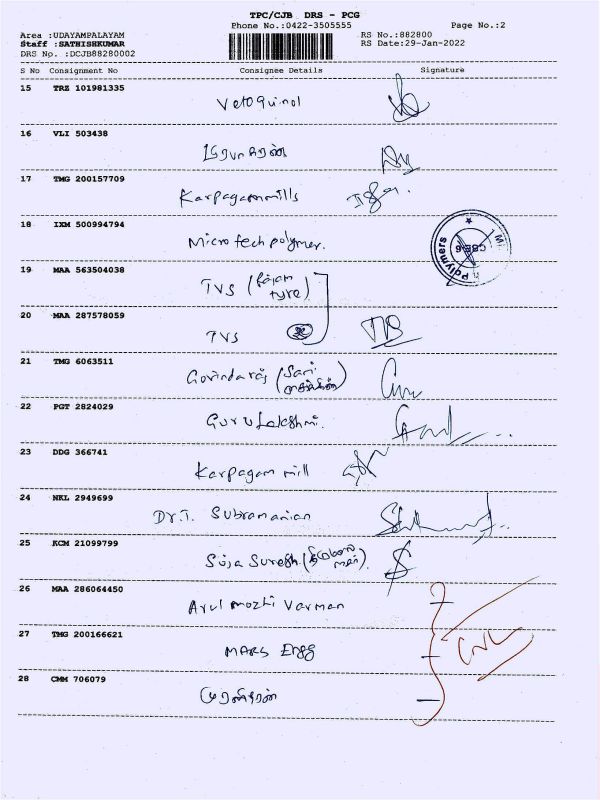 TPC/CJB DRS - PCG
Phone No.:0422-3505555 Page No.:2
Area :UDAYAMPALAYAM RS No.:882800
Staff :SATHISHKUMAR RS Date:29-Jan-2022
DRS No. :DCJB88280002
S No Consignment No Consignee Details Signature
15 TRZ 101981335
Vetoquinol
16 VLI 503438
17 TMG 200157709
Karpagam mills
18 IXM 500994794
Micro tech polymer.
Polymers
CBE-6
19 MAA 563504038
TVS ( tyre)
20 MAA 287578059
TVS
21 TMG 6063511
Govindaraj (Sari
22 PGT 2824029
Guru Lakshmi.
23 DDG 366741
Karpagam mill
24 NKL 2949699
Dr.T. Subramanian
25 KCM 21099799
Suja Suresh
26 MAA 286064450
Arul mozhi Varman
27 TMG 200166621
MARS Engg
28 CMM 706079
முரளிதரன்